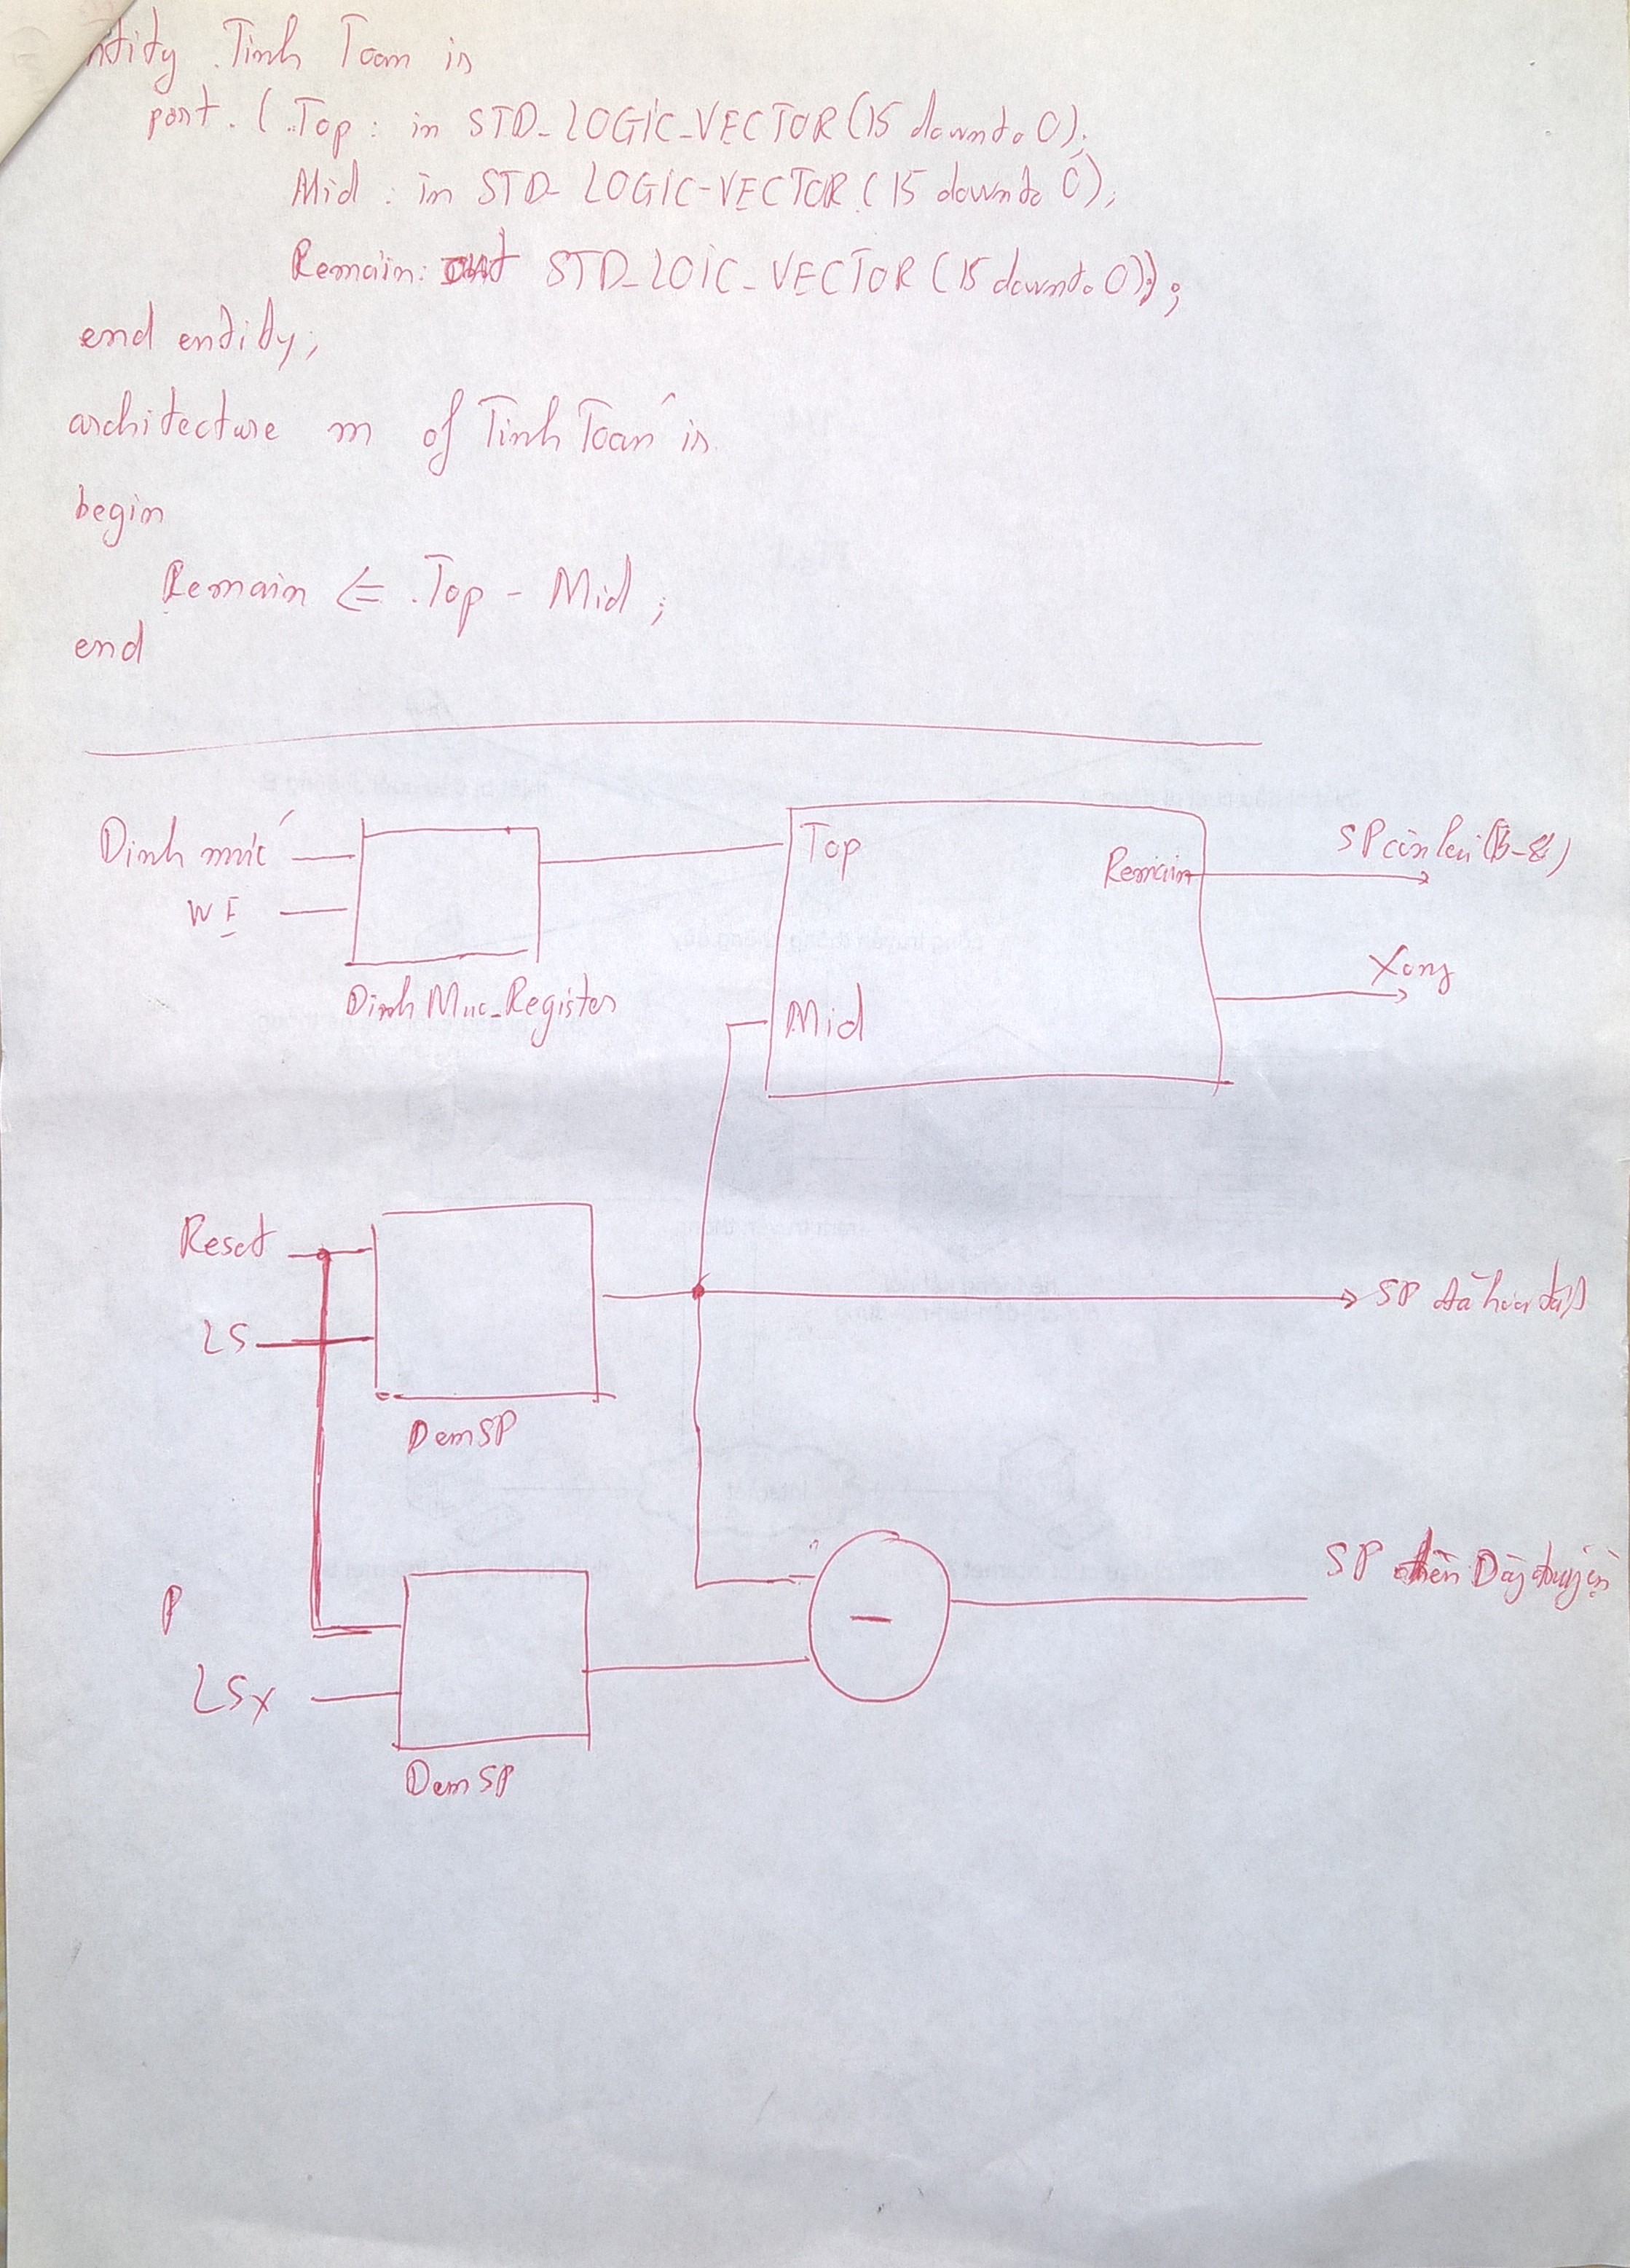 ntity Tinh Toan is
port ( Top : in STD_LOGIC_VECTOR (15 downto 0);
Mid : in STD_LOGIC_VECTOR (15 downto 0);
Remain: out STD_LOIC_VECTOR (15 downto 0));
end entity;
architecture m of Tinh Toan is
begin
Remain <= Top - Mid;
end
Dinh mức
WE
Dinh Muc_Register
Top
Mid
Remain
SP còn lại
Xong
Reset
LS
Dem SP
SP đã hoàn tất
P
LSx
Dem SP
-
SP trên Dây chuyền